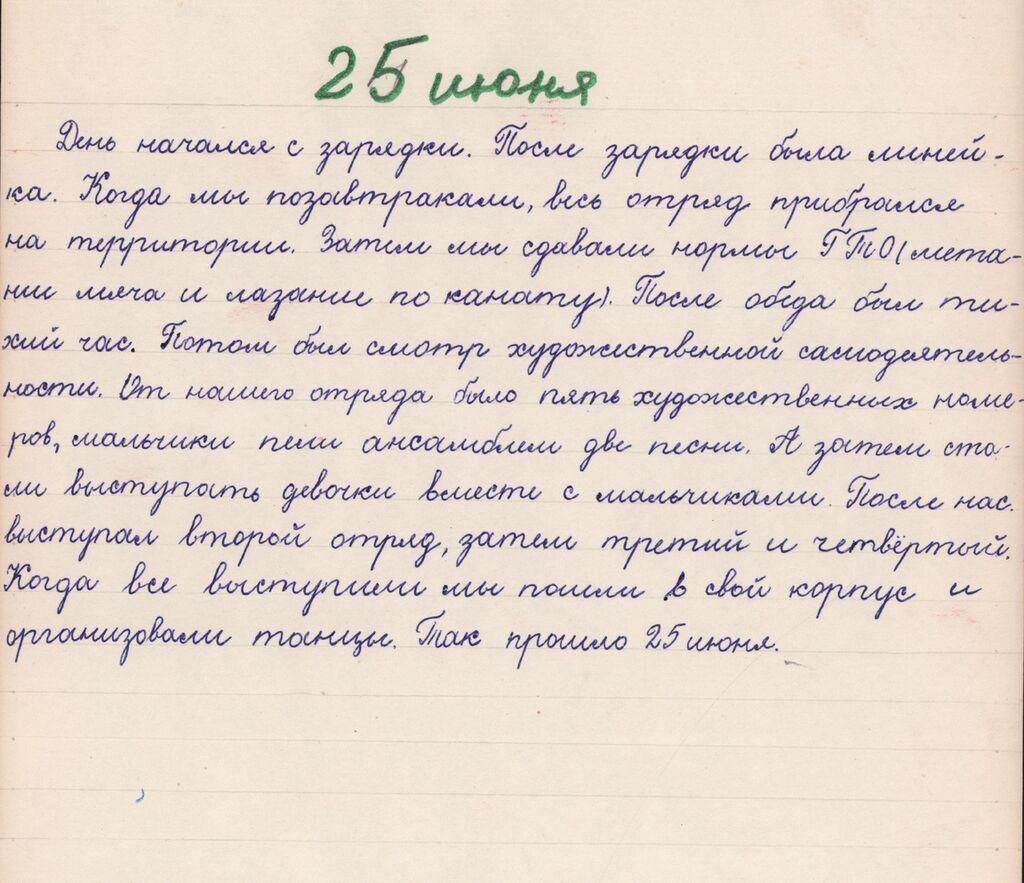 25 июня
День начался с зарядки. После зарядки была линей-
ка. Когда мы позавтракали, весь отряд прибрался
на территории. Затем мы сдавали нормы ГТО (мета-
нии мяча и лазание по канату). После обеда был ти-
хий час. Потом был смотр художественной самодеятель-
ности. От нашего отряда было пять художественных номе-
ров, мальчики пели ансамблем две песни. А затем ста-
ли выступать девочки вместе с мальчиками. После нас
выступал второй отряд, затем третий и четвёртый.
Когда все выступили мы пошли в свой корпус и
организовали танцы. Так прошло 25 июня.